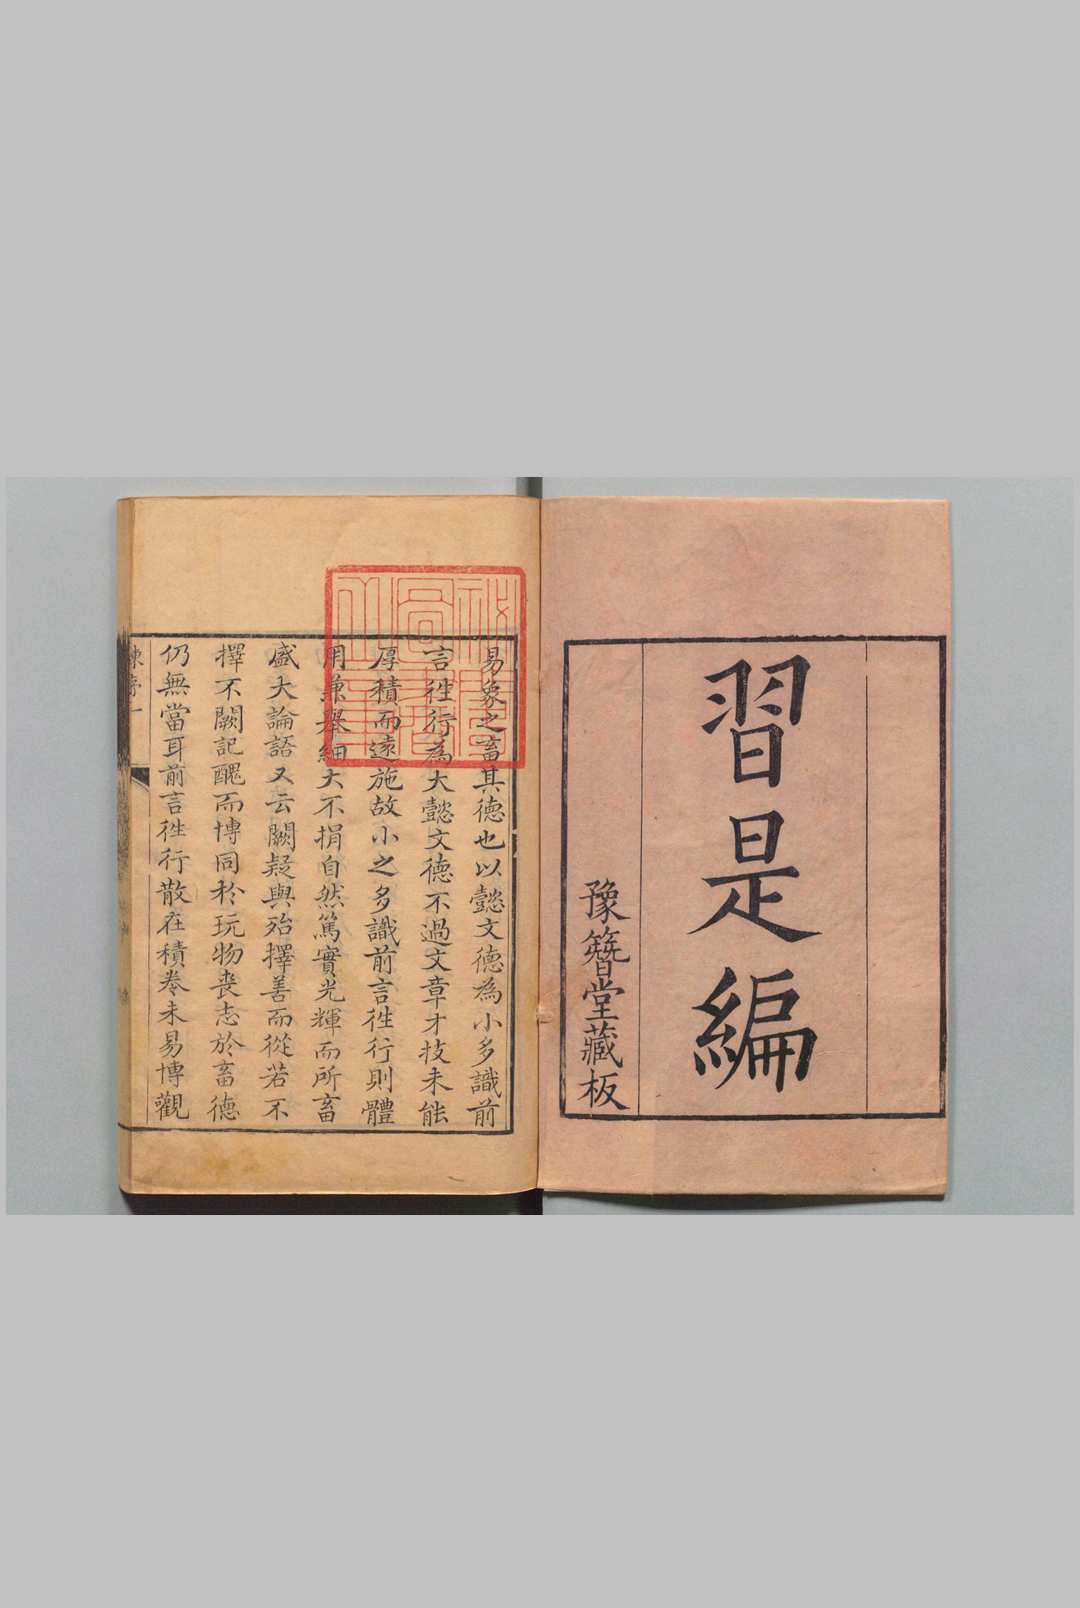 習是編
豫簪堂藏板
易象之畜其德也以懿文德為小多識前
言徃行為大懿文德不過文章才技未能
厚積而遠施故小之多識前言徃行則體
用兼舉細大不捐自然篤實光輝而所畜
盛大論語又云闕疑與殆擇善而從若不
擇不闕記醜而博同於玩物喪志於畜德
仍無當耳前言徃行散在積卷未易博觀
陳序一